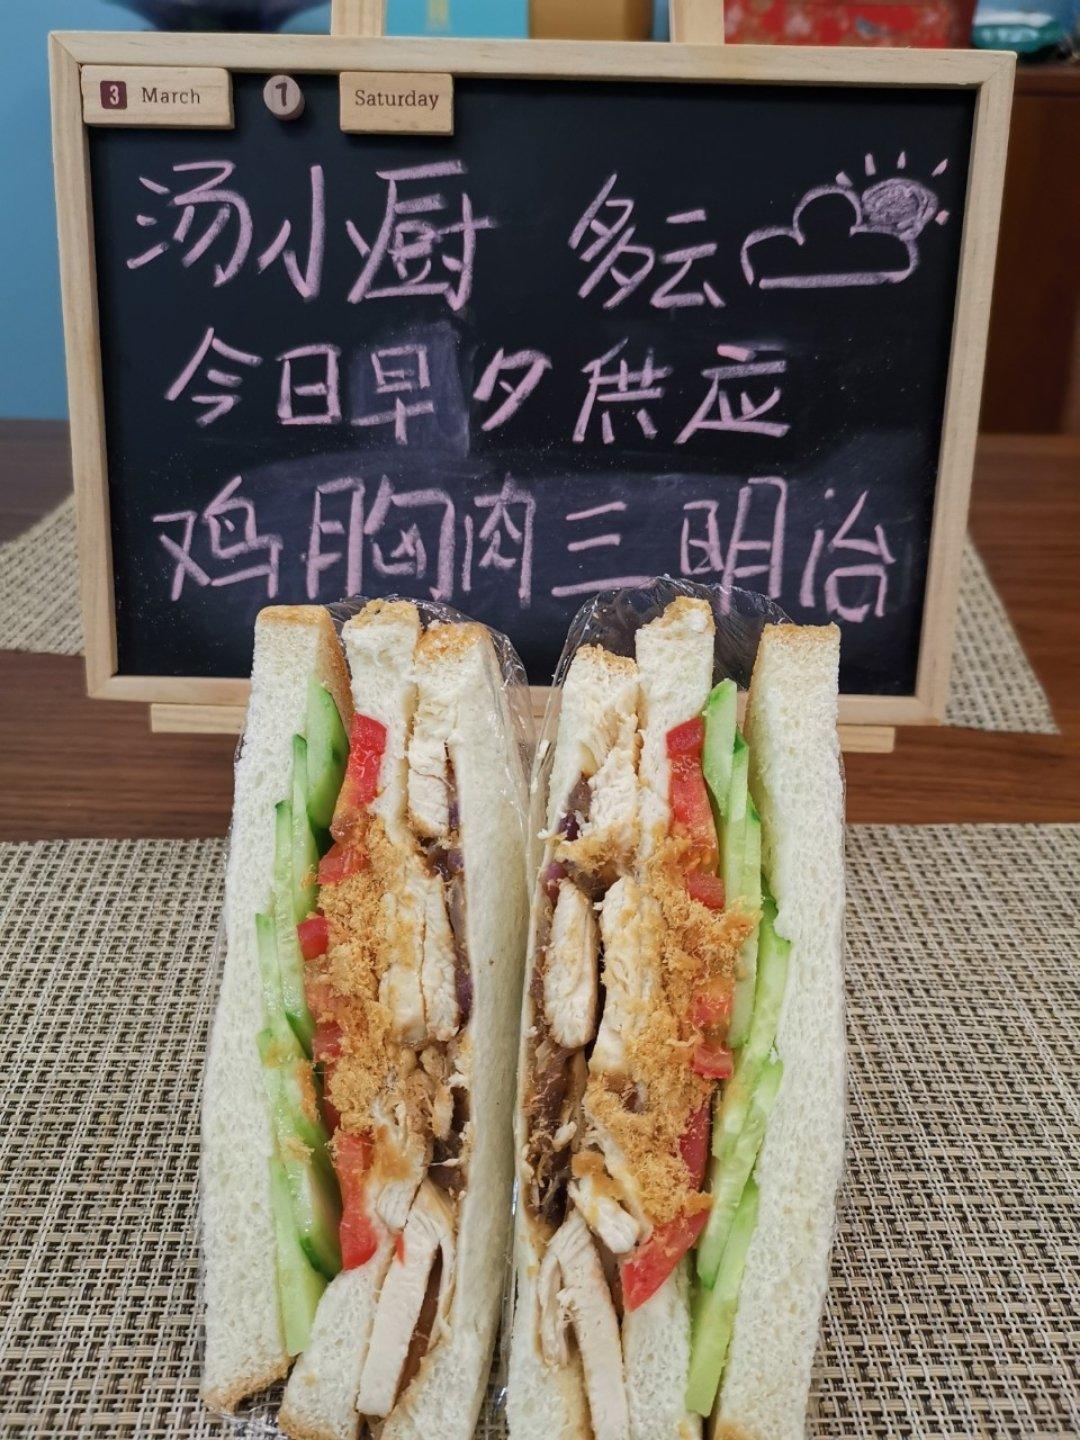 3 March 7 Saturday
汤小厨 多云
今日早夕供应
鸡胸肉三明治